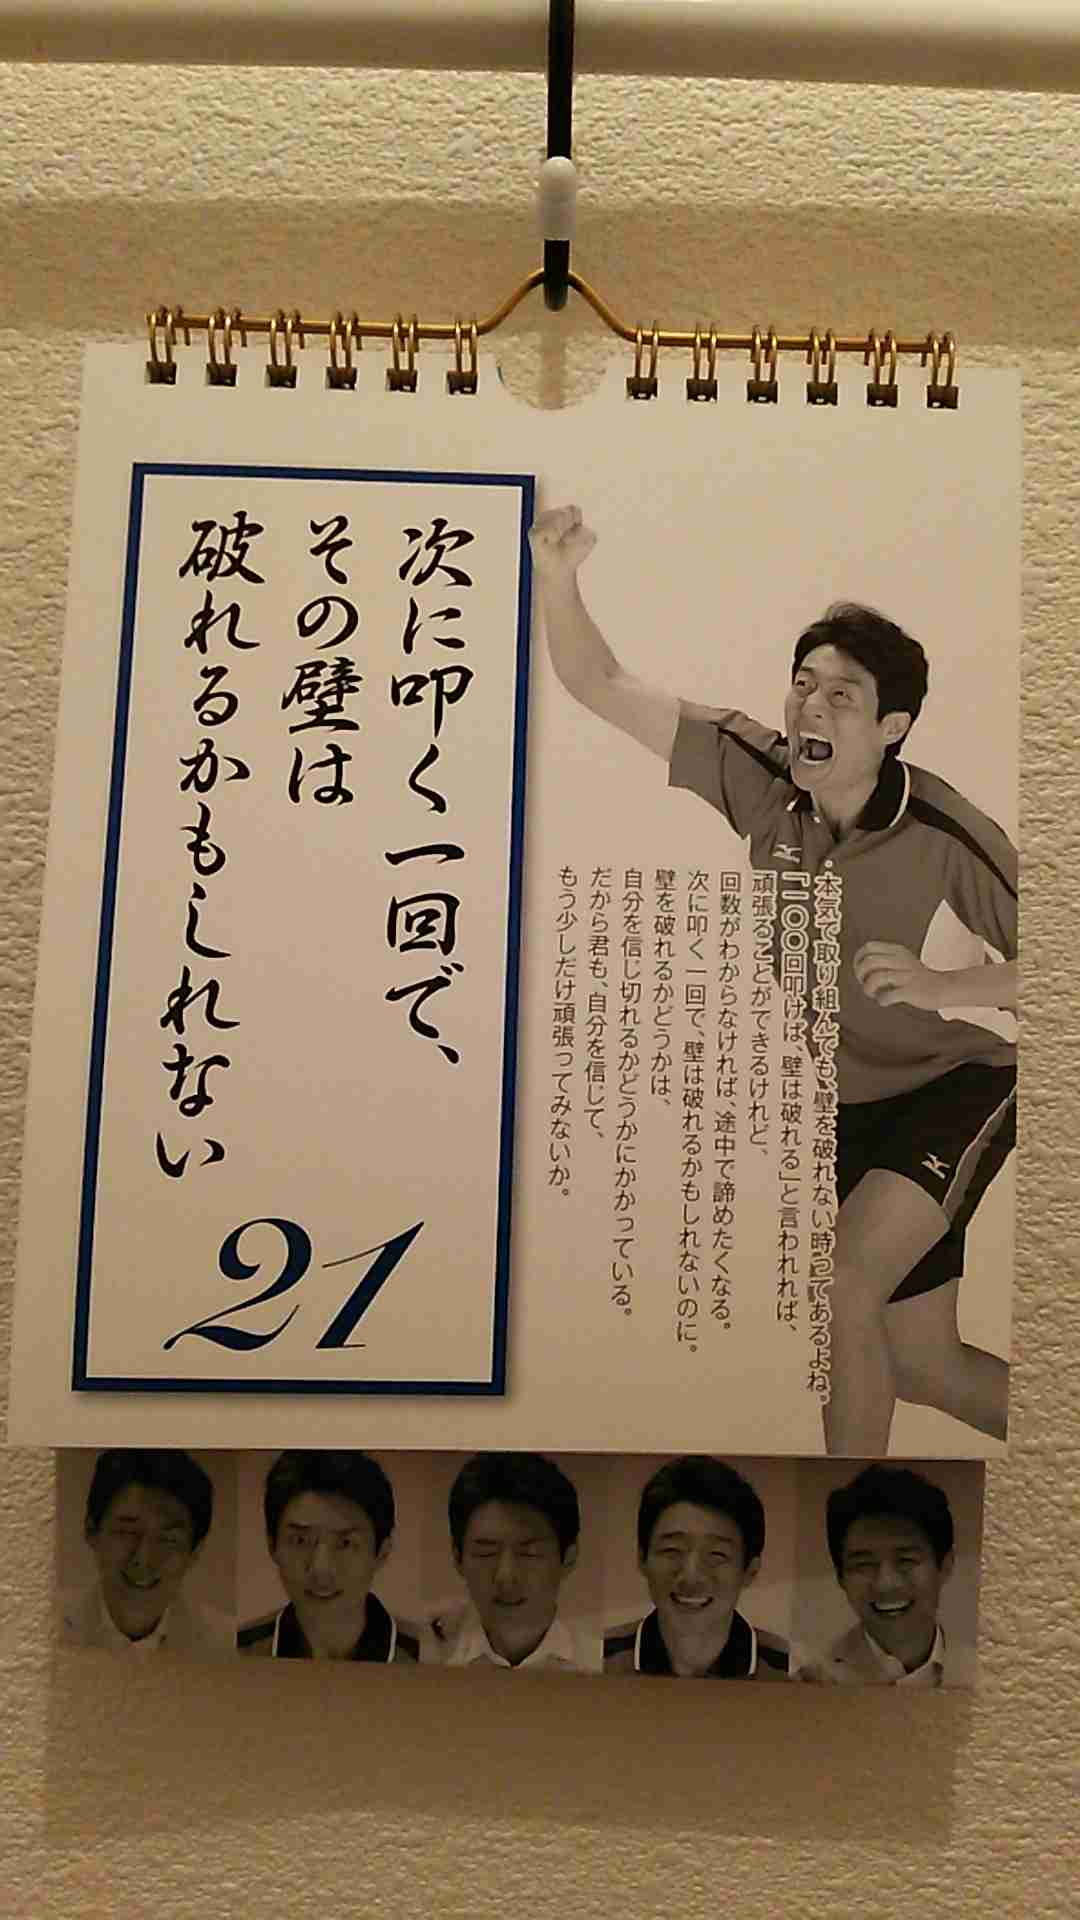 次に叩く一回で、
その壁は
破れるかもしれない
21
・本気で取り組んでも、壁を破れない時ってあるよね。
「一〇〇回叩けば、壁は破れる」と言われれば、
頑張ることができるけれど、
回数がわからなければ、途中で諦めたくなる。
次に叩く一回で、壁は破れるかもしれないのに。
壁を破れるかどうかは、
自分を信じ切れるかどうかにかかっている。
だから君も、自分を信じて、
もう少しだけ頑張ってみないか。